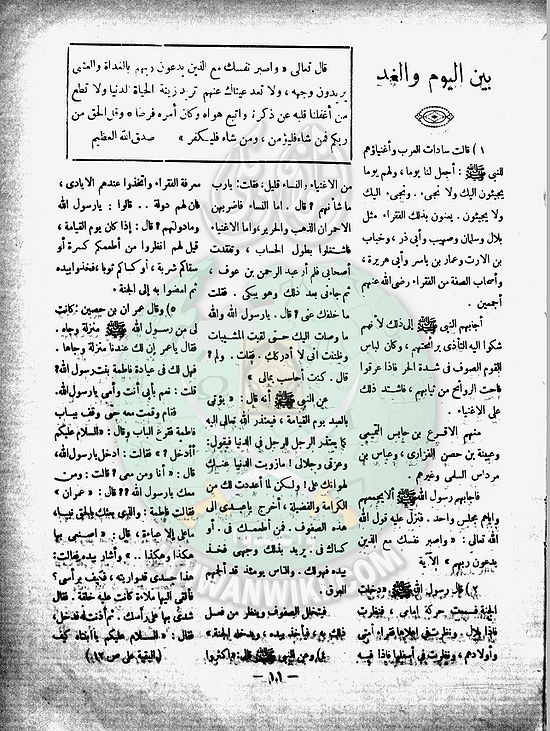 بين اليوم والغد
قال تعالى « واصبر نفسك مع الذين يدعون ربهم بالغداة والعشى
يريدون وجهه ، ولا تعد عيناك عنهم تريد زينة الحياة الدنيا ولا تطع
من أغفلنا قلبه عن ذكرنا واتبع هواه وكان أمره فرطا » وقل الحق من
ربكم فمن شاء فليؤمن ، ومن شاء فليكفر » صدق الله العظيم
١ ) قالت سادات العرب وأغنياؤهم
للنبى ﷺ : أجعل لنا يوما ، ولهم يوما
يجيئون اليك ولا نجىء . ونجىء اليك
ولا يجيئون . يعنون بذلك الفقراء مثل
بلال وسلمان وصهيب وأبى ذر ، وخباب
بن الارت وعمار بن ياسر وأبى هريرة ،
وأصحاب الصفة من الفقراء رضى الله عنهم
أجمعين .
أجابهم النبى ﷺ إلى ذلك لأنهم
شكوا اليه التأذى برائحتهم ، وكان لباس
القوم الصوف فى شدة الحر فاذا عرقوا
فاحت الروائح من ثيابهم ، فاشتد ذلك
على الاغنياء .
منهم الاقرع بن حابس التميمى
وعيينة بن حصن الفزارى ، وعباس بن
مرداس السلمى وغيرهم .
فاجابهم رسول الله ﷺ ألا يجمعهم
وإياهم بمجلس واحد . فنزل عليه قول الله
تعالى : « واصبر نفسك مع الذين
يدعون ربهم » الآية
٢ ) قال رسول الله ﷺ ودخلت
الجنة فسمعت حركة أمامى ، فنظرت
فاذا بلال . ونظرت فى أعلاها فقراء أمتى
وأولادهم ، ونظرت فى أسفلها فاذا فيه
من الاغنياء والنساء قليل ، فقلت: يارب
ما شأنهم ؟ قال . اما النساء فاضربهن
الاحمران الذهب والحرير ، واما الاغنياء
فاشتغلوا بطول الحساب ، وتفقدت
أصحابى فلم أر عبد الرحمن بن عوف ،
ثم جاءنى بعد ذلك وهو يبكى . فقلت
ما خلفك عنى ؟ قال . يارسول الله والله
ما وصلت اليك حتى لقيت المشيبات
وظننت انى لا أدركك . فقلت . ولم ؟
قال . كنت أحاسب بمالى »
عن النبى ﷺ أنه قال : « يؤتى
بالعبد يوم القيامة ، فيعتذر الله تعالى اليه
كما يعتذر الرجل للرجل فى الدنيا فيقول:
وعزتى وجلالى ! مازويت الدنيا عنك
لهوانك على ! ولكن لما أعددت لك من
الكرامة والفضيلة ، أخرج ياعبدى الى
هذه الصفوف . فمن أطعمك فى أو
كساك فى . يريد بذلك وجهى فخذ
بيده فهو لك . والناس يومئذ قد ألجمهم
العرق .
فتتخلل الصفوف وينظر من فعل
ذلك به ، فيأخذ بيده ، ويدخله الجنة »
٤) وعن النبى ﷺ قال: « اكثروا
معرفة الفقراء واتخذوا عندهم الايادى ،
فان لهم دولة .. قالوا : يارسول الله
ومادولتهم ؟ قال : إذا كان يوم القيامة ،
قيل لهم انظروا من أطعمكم كسرة أو
سقاكم شربة ، أو كساكم ثوبا ، فخذوا بيده
ثم امضوا به إلى الجنة »
٥ ) وقال عمران بن حصين : كانت
لى من رسول الله ﷺ منزلة وجاه .
فقال ياعمران لك عندنا منزلة وجاها .
فهل لك فى عيادة فاطمة بنت رسول الله؟
قلت : نعم بأبى أنت وأمى يارسول الله.
فقام وقمت معه حتى وقف بباب
فاطمة فقرع الباب وقال : « السلام عليكم
أأدخل ؟ » فقالت : ادخل يارسول الله،
قال : « أنا ومن معى ؟ قالت : ومن
معك يارسول الله ؟؟ قال : « عمران »
فقالت فاطمة : والذى بعثك بالحق نبيا،
ماعلى إلا عباءة ، قال : « اصنعى بها
هكذا وهكذا .. » وأشار بيده فقالت:
هذا جسدى قد واريته ، فكيف برأسى؟
فألقى اليها ملاءة كانت عليه خلقة . فقال
شدى بها على رأسك . ثم أذنت له فدخل،
فقال : « السلام عليكم يا ابنتاه كيف
(البقية على ص ١٢ )
— ١٠١ —
JHWANWIKI.COM